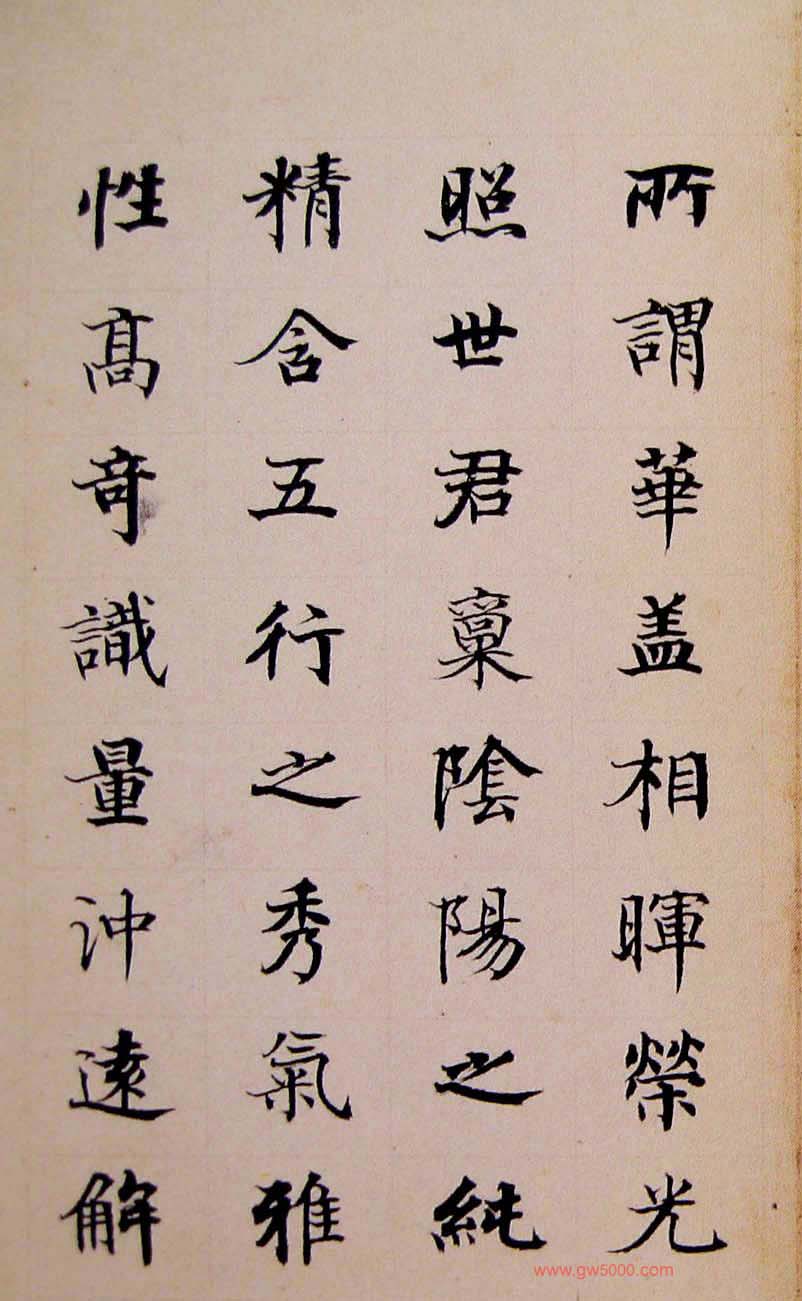 所謂華盖相暉榮光
照世君稟陰陽之純
精含五行之秀氣雅
性髙竒識量沖遠解
www.gw5000.com